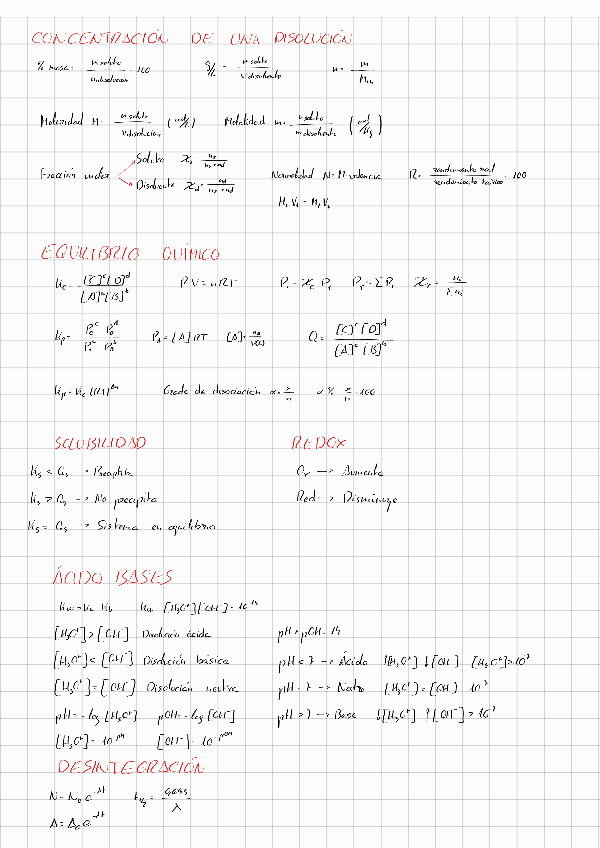 CONCENTRACIÓN DE UNA DISOLUCIÓN
% masa = m soluto / m disolución · 100   g/L = m soluto / V disolvente   n = m / Mm
Molaridad M = n soluto / V disolución (mol/L)   Molalidad m = n soluto / m disolvente (mol/Kg)
Fracción molar → Soluto χs = ns / ns + nd
→ Disolvente χd = nd / ns + nd
Normalidad N = M · valencia   R = rendimiento real / rendimiento teórico · 100
M1 V1 = M2 V2
EQUILIBRIO QUÍMICO
Kc = [C]^c [D]^d / [A]^a [B]^b   P V = nRT   PT = Σ Pi
Kp = Pc^c PD^d / PA^a PB^b   PA = [A] RT   [A] = nA / V(L)   Q = [C]^c [D]^d / [A]^a [B]^b
Kp = Kc (RT)^Δn   Grado de disociación α = x / n   α % = x / n · 100
SOLUBILIDAD
Ks < Qs → Precipita
Ks > Qs → No precipita
Ks = Qs → Sistema en equilibrio
REDOX
Ox → Aumenta
Red → Disminuye
ÁCIDO BASES
Kw = Ka · Kb   Kw = [H3O+] [OH-] = 10^-14
[H3O+] > [OH-] Disolución ácida
[H3O+] < [OH-] Disolución básica
[H3O+] = [OH-] Disolución neutra
pH = -log [H3O+]   pOH = -log [OH-]
[H3O+] = 10^-pH   [OH-] = 10^-pOH
pH + pOH = 14
pH < 7 → Ácido ↑[H3O+] ↓[OH-] [H3O+] > 10^-7
pH = 7 → Neutro [H3O+] = [OH-] 10^-7
pH > 7 → Base ↓[H3O+] ↑[OH-] > 10^-7
DESINTEGRACIÓN
N = N0 e^-λt   t1/2 = 0,693 / λ
A = A0 e^-λt